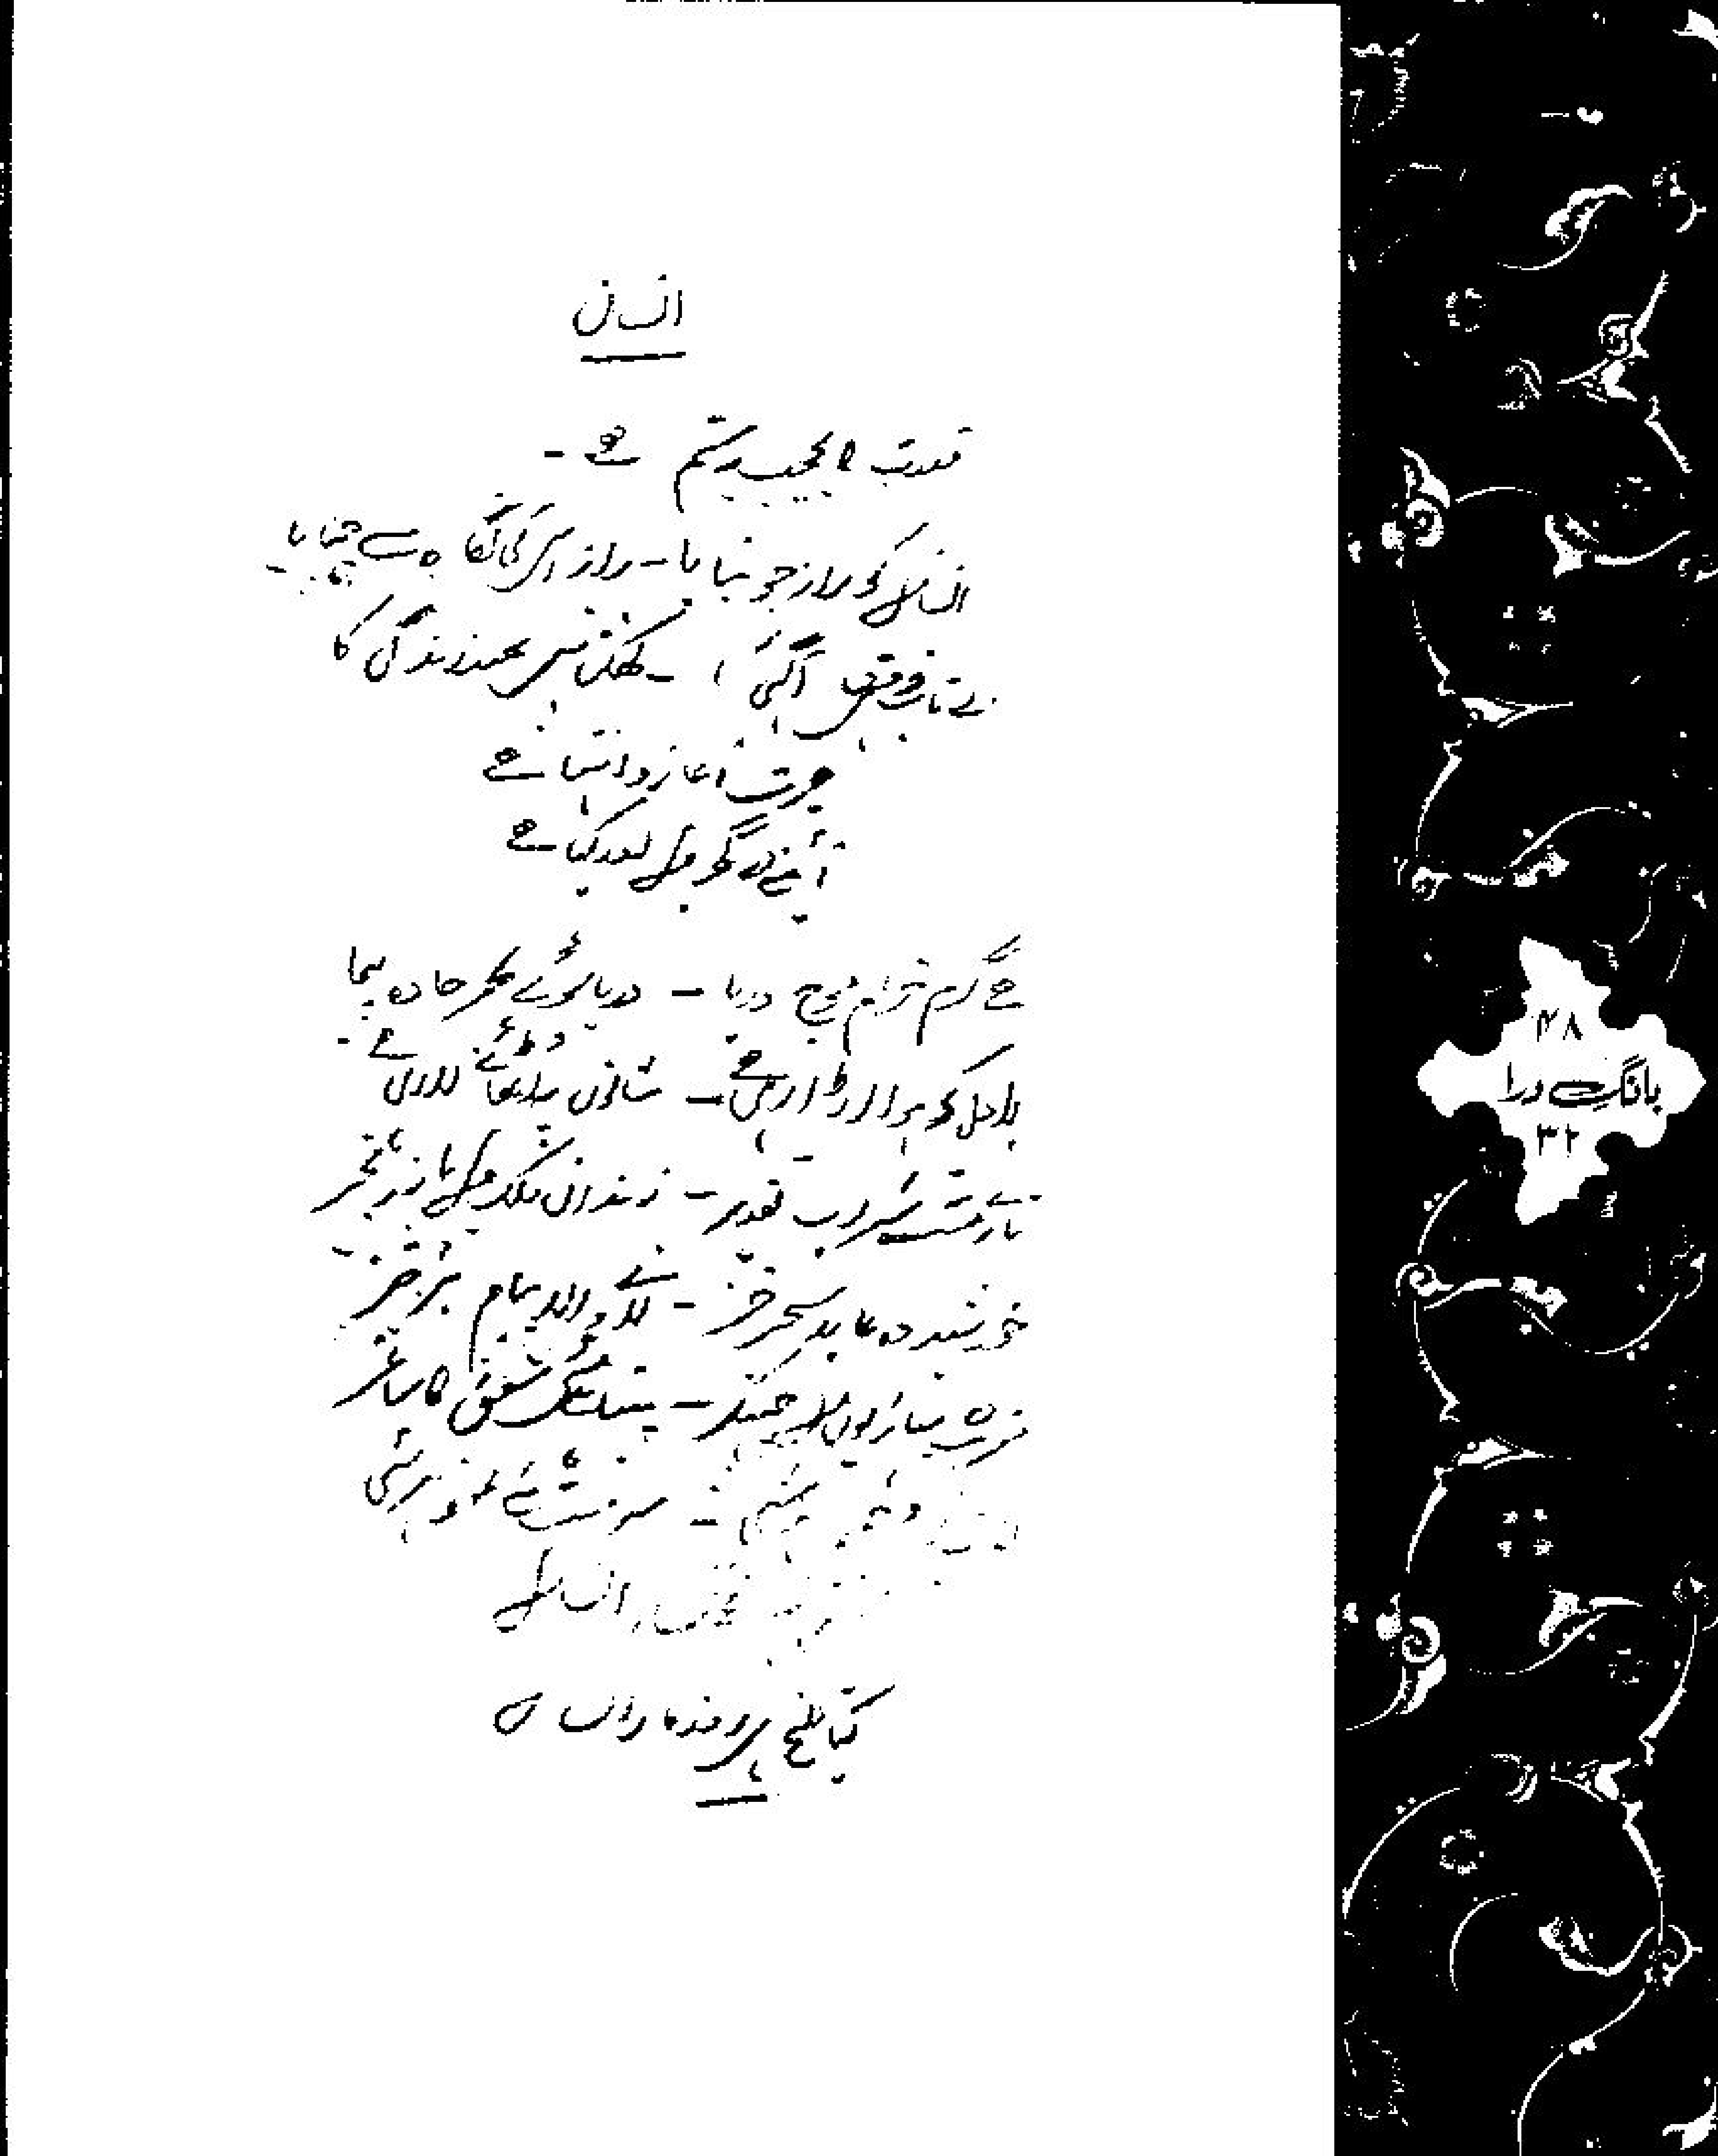 انسان
قدرت کا عجیب ستم ہے -
انسان کو راز جو بنایا - راز اس کی نگاہ سے چھپایا
بے تاب ہے ذوق آگہی کا - کھلتا نہیں بھید زندگی کا
حیرت آغاز و انتہا ہے
آئینے کے گھر میں اور کیا ہے
ہے گرم خرام موج دریا - دریا سوئے بحر جادہ پیما
بادل کو ہوا اڑا رہی ہے - شانوں پہ اٹھائے لا رہی ہے
تارے مست شراب تقدیر - زندان فلک میں پا بہ زنجیر
خورشید وہ عابد سحر خیز - لانے والا پیام برخیز
مغرب کی پہاڑیوں میں چھپ کر - پیتا ہے مے شفق کا ساغر
لذت گیر وجود ہر شے - سر مست مے نمود ہر شے
کوئی نہیں غمگسار انساں
کیا تلخ ہے روزگار انساں
۴۸
بانگِ درا
۳۲